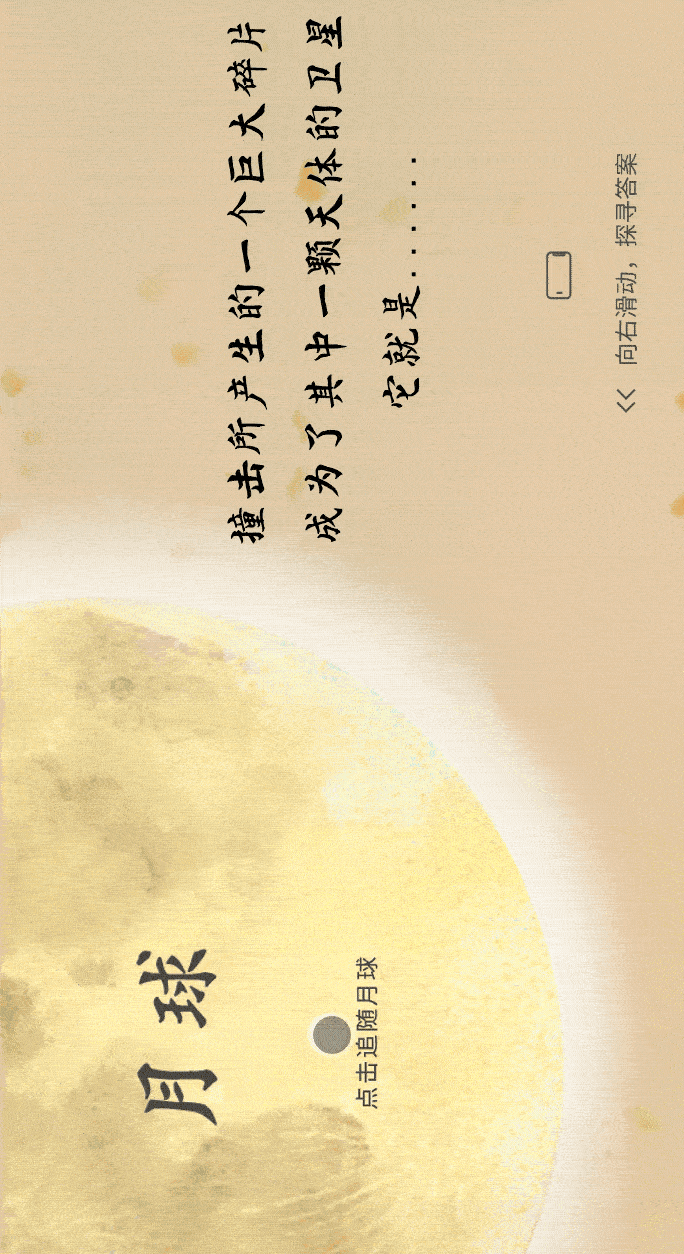 撞击所产生的一个巨大碎片
成为了其中一颗天体的卫星
它就是.......
向右滑动，探寻答案
月球
点击追随月球